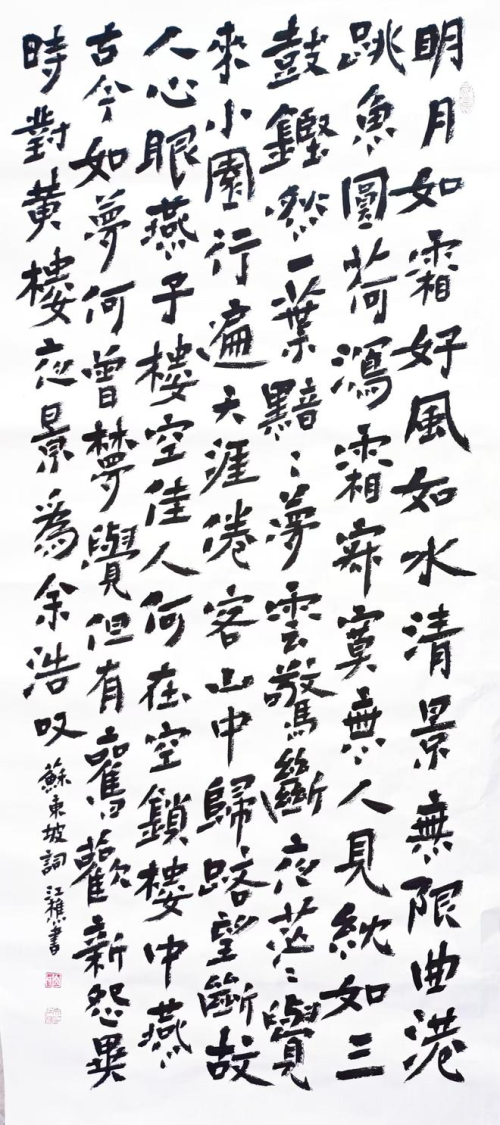 明月如霜好風如水清景無限曲港
跳魚圓荷瀉霜寂寞無人見紞如三
鼓鏗然一葉黯〻夢雲驚斷夜茫〻覺
來小園行遍天涯倦客山中歸路望斷故
人心眼燕子樓空佳人何在空鎖樓中燕
古今如夢何曾夢覺但有舊歡新怨異
時對黃樓夜景為余浩叹
蘇東坡詞 江樵書